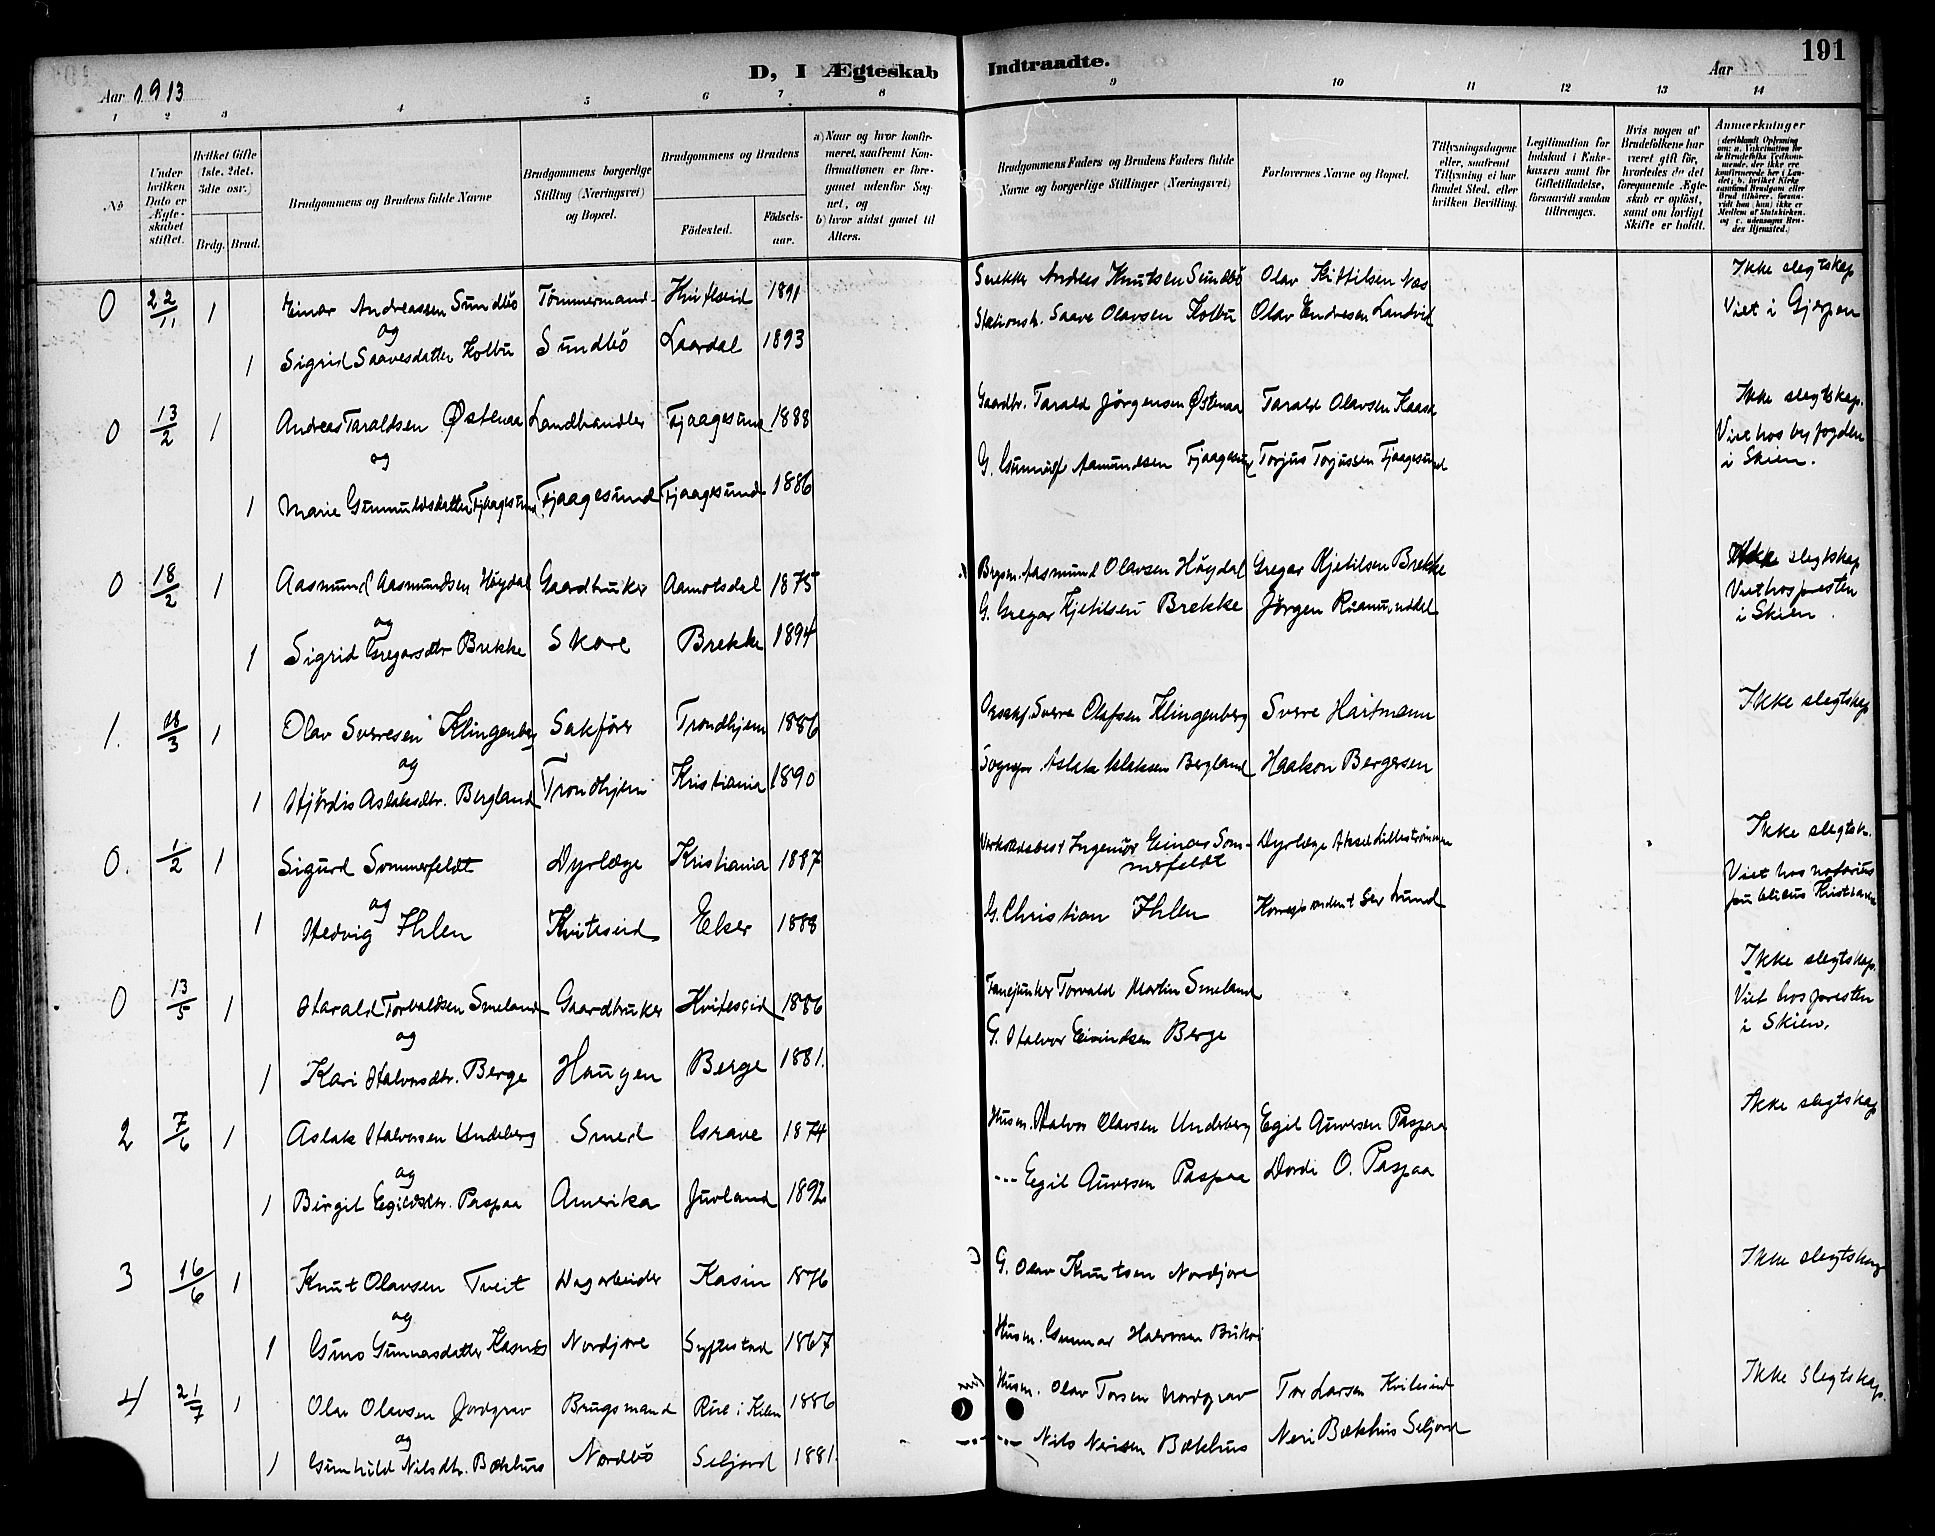 191
D, I Ægteskab Indtraadte.
Aar 1913 Aar
1 2 3 4 5 6 7 8 9 10 11 12 13 14
No
Under hvilken Dato er Ægteskabet stiftet.
Hvilket Gifte (1ste. 2det. 3die osv.)
Brdg. Brud.
Brudgommens og Brudens fulde Navne
Brudgommens borgerlige Stilling (Næringsvei) og Bopæl.
Brudgommens og Brudens
Fødested.
Fødselsaar.
a) Naar og hvor konfirmeret, saafremt Konfirmationen er foregaaet udenfor Sognet, og
b) hvor sidst gaaet til Alters.
Brudgommens Faders og Brudens Faders fulde Navne og borgerlige Stillinger (Næringsvei)
Forlovernes Navne og Bopæl.
Tillysningsdagene eller, saafremt Tillysning ei har fundet Sted, efter hvilken Bevilling.
Legitimation for Indskud i Enkekassen samt for Giftetilladelse, forsaavidt saadan tiltrænges.
Hvis nogen af Brudefolkene har været gift før, hvorledes da det foregaaende Ægteskab er opløst, samt om lovligt Skifte er holdt.
Anmærkninger
0 22/11 1 Einar Andreassen Sundbö Tömmermand Kviteseid 1891 Snekker Andres Knutsen Sundbö Olav Kittilsen Næs Ikke slegtskap
og
1 Sigrid Saavesdatter Holbu Sundbö Laardal 1893 Saave Olavsen Holbu Olav Endresen Landvik Viet i Gjerpen
0 13/2 1 Andreas Taraldsen Østenaa Landhandler Fjaagesund 1888 Gaardbr. Tarald Jörgensen Østenaa Tarald Olavsen Kaasa Ikke slegtskap.
og
1 Marie Gunnulvsdatter Fjaagesund Fjaagesund Fjaagesund 1886 G. Gunnulf Aamundsen Fjaagesund Torjus Torjussen Fjaagesund Viet hos byfogden i Skien.
0 18/2 1 Aasmund Aasmundsen Höydal Gaardbruker Aamotsdal 1875 Aasmund Olavsen Höydal Gregar Kjetilsen Brekke Ikke slegtskap
og
1 Sigrid Gregarsdtr Brekke Skore Brekke 1894 G. Gregar Kjetilsen Brekke Jørgen Viet hos presten i Skien.
1. 18/3 1 Olav Sverresen Klingenberg Sakförer Trondhjem 1886 Sverre Olafsen Klingenberg Sverre Hartmann Ikke slegtskap
og
1 Hjördis Aslaksdtr. Bergland Trondhjem Kristiania 1890 Sogepr. Aslak Aslaksen Bergland Haakon Bergersen
0. 1/2 1 Sigurd Sommerfeldt Dyrlæge Kristiania 1887 Ingeniör Einar Sommerfeldt Dyrlæge Aksel Ikke slegtsk.
og
1 Hedvig Ihlen Kviteseid Eker 1888 G. Christian Ihlen Korrespondent Lund Viet hos notarius publicus Kristiania
0 13/5 1 Harald Torvaldsen Smeland Gaardbruker Kviteseid 1886 Fanejunker Torvald Martin Smeland Ikke slegtskap.
og
1 Kari Halvorsdtr. Berge Haugen Berge 1881. G. Halvor Eivindsen Berge Viet hos presten i Skien.
2 7/6 1 Aslak Halvorsen Undeberg Smed Grave 1874 Husm. Halvor Olavsen Undeberg Egil Auversen Paspaa Ikke slegtskap
og
1 Birgit Egilsdtr. Paspaa Amerika Juvland 1892 --- Egil Auversen Paspaa Dordi O. Paspaa
3 16/6 1 Knut Olavsen Tveit Dagarbeider Kasin 1876 G. Olav Knutsen Nordjore Ikke slegtskap
og
1 Guro Gunnarsdatter Nordjore Syftestad 1867 Husm. Gunnar Halvorsen
4 21/7 1 Olav Olavsen Jordgrav Brugsmand 1886 Husm. Olav Torsen Tor Larsen Kviteseid Ikke slegtskap.
og
1 Gunhild Nilsdtr. Bækhus Nordbö Seljord 1881. Nils Nerisen Bækhus Neri Bækhus Seljord